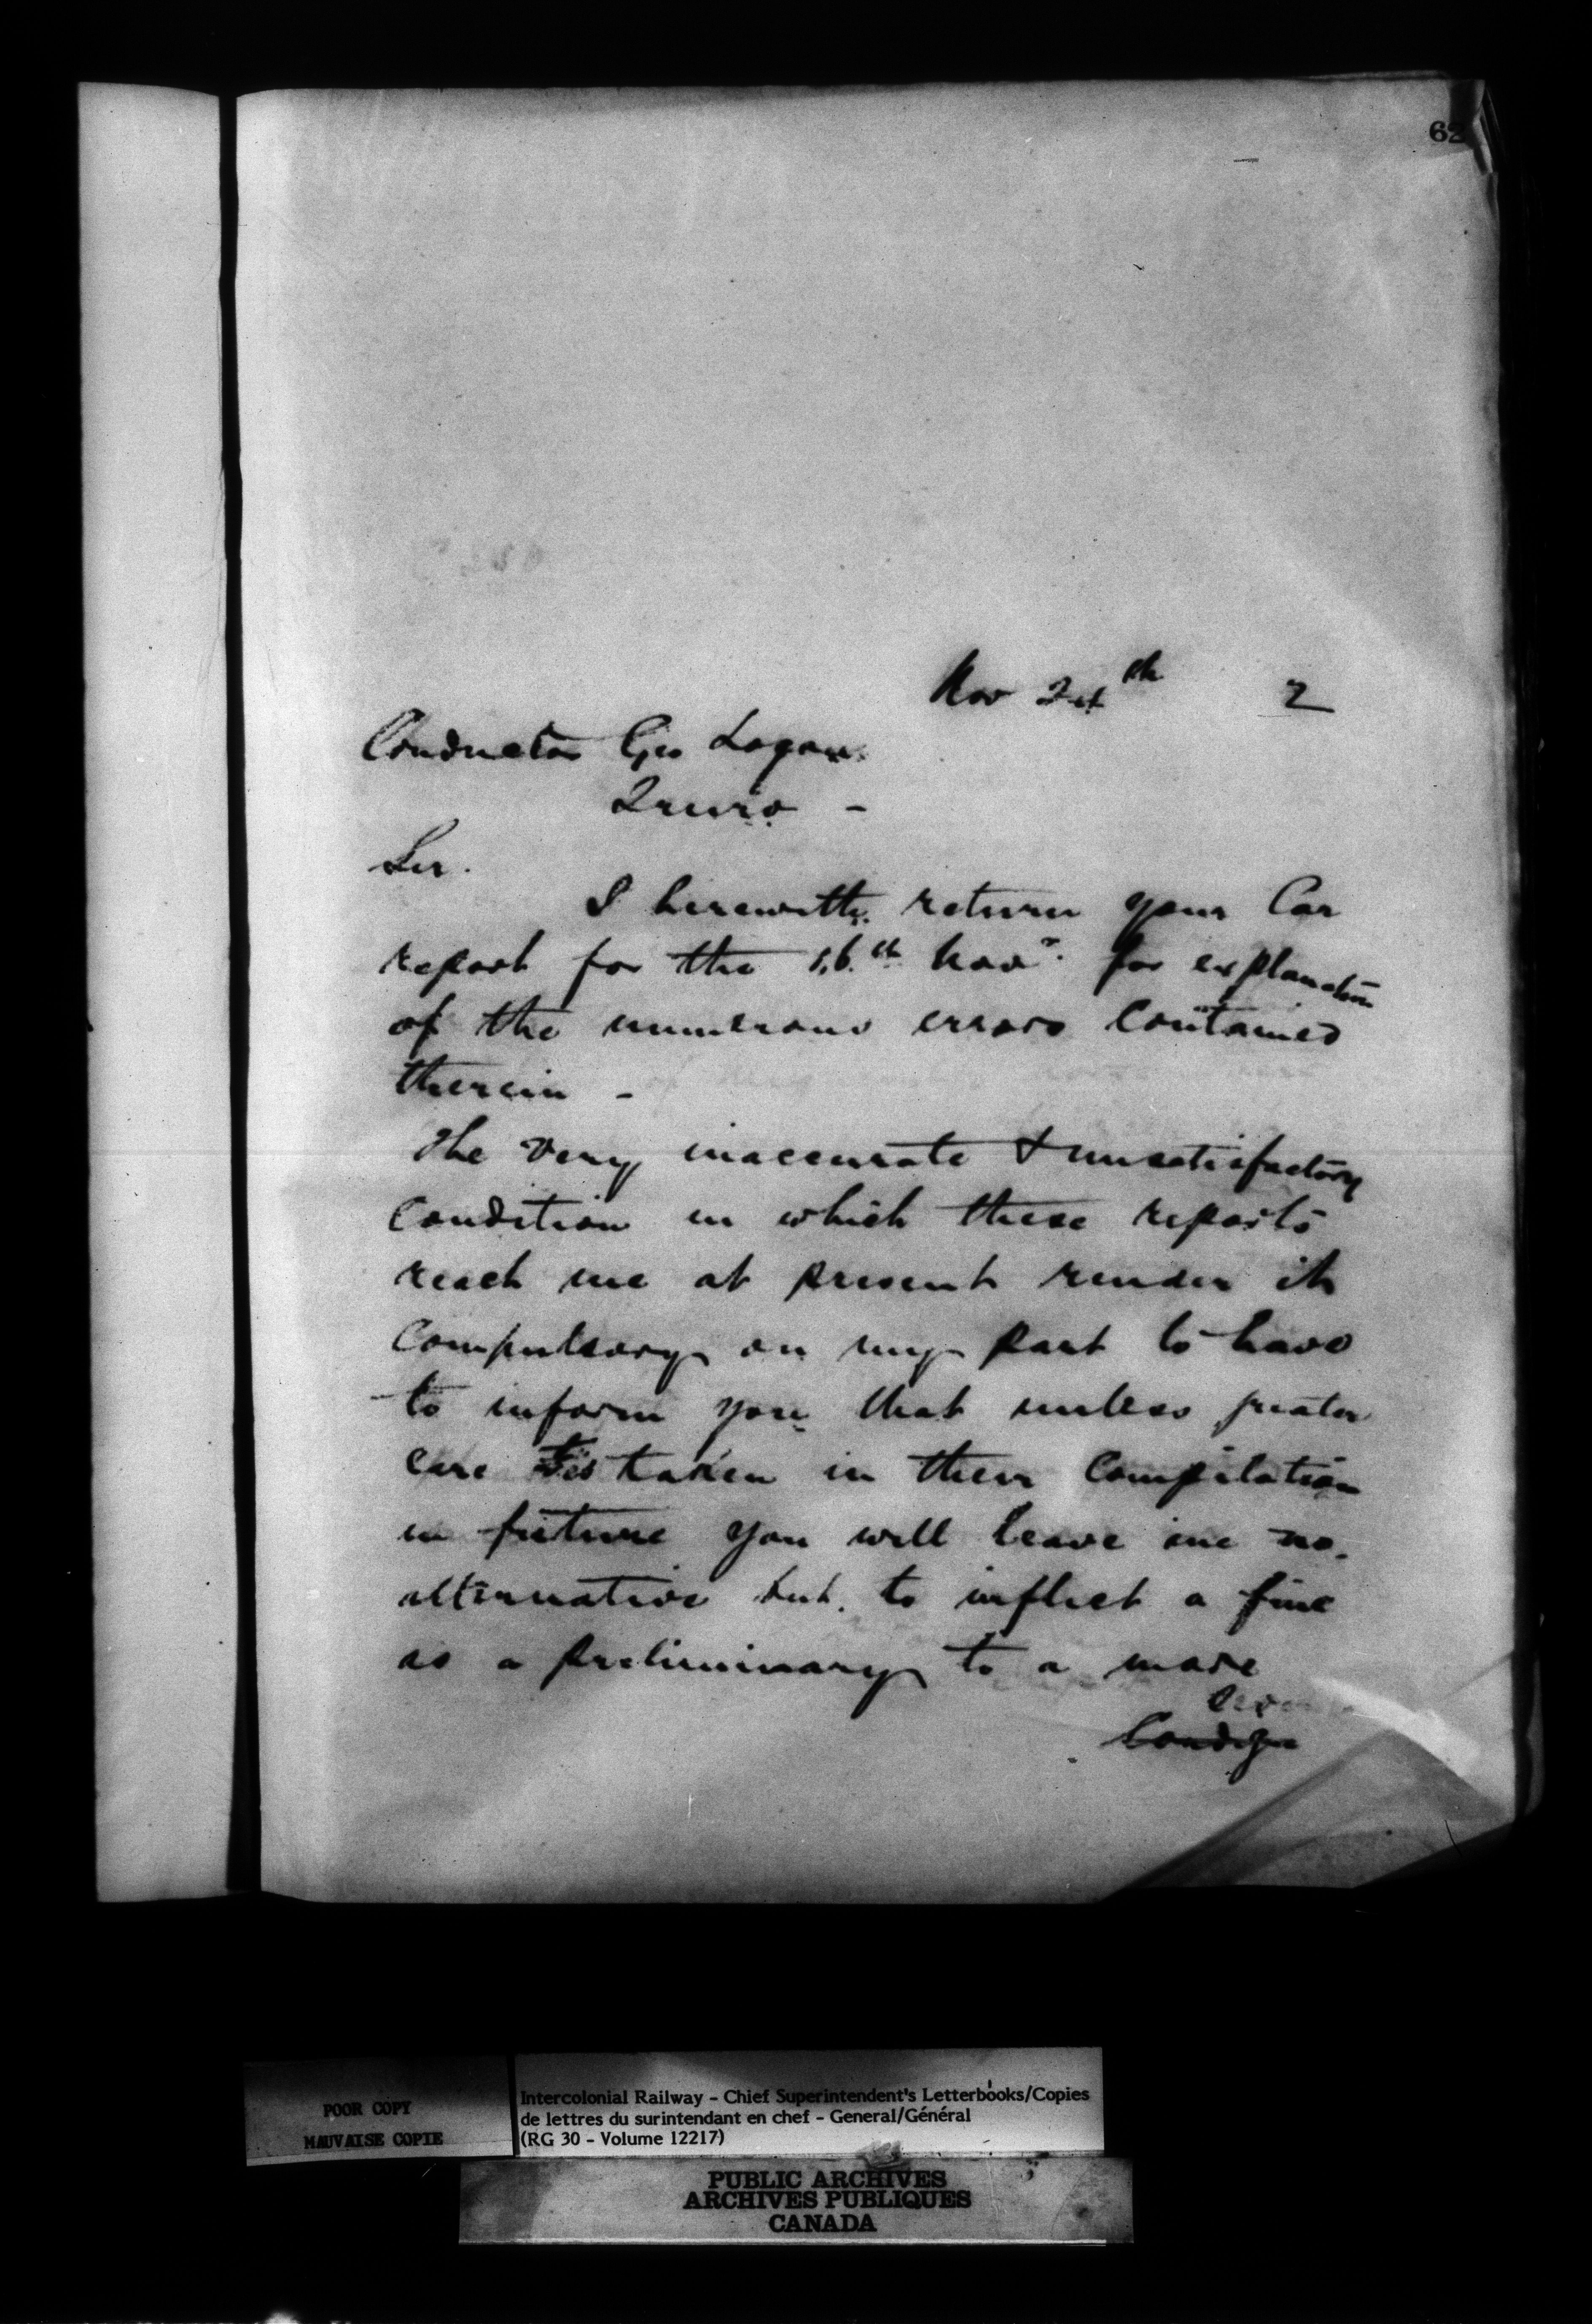 62
Nov 24th 2
Conductor Geo Logan
Truro -
Sir.
I herewith return your Car
report for the 16th Novr. for explanation
of the numerous errors Contained
therein -
The very inaccurate & unsatisfactory
Condition in which these reports
reach me at present render it
Compulsory on my part to have
to inform you that unless greater
care is taken in their Compilation
in future you will leave me no
alternative but to inflict a fine
as a preliminary to a more
Condign
POOR COPY
MAUVAISE COPIE
Intercolonial Railway - Chief Superintendent's Letterbooks/Copies
de lettres du surintendant en chef - General/Général
(RG 30 - Volume 12217)
PUBLIC ARCHIVES
ARCHIVES PUBLIQUES
CANADA